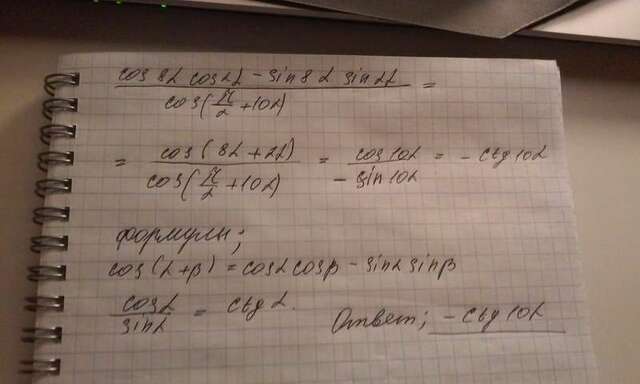 cos 8α cos 2α - sin 8α sin 2α / cos(π/2 + 10α) =
= cos(8α + 2α) / cos(π/2 + 10α) = cos 10α / - sin 10α = - ctg 10α
формулы;
cos(α + β) = cosα cosβ - sinα sinβ
cosα / sinα = ctg α. Ответ; - ctg 10α